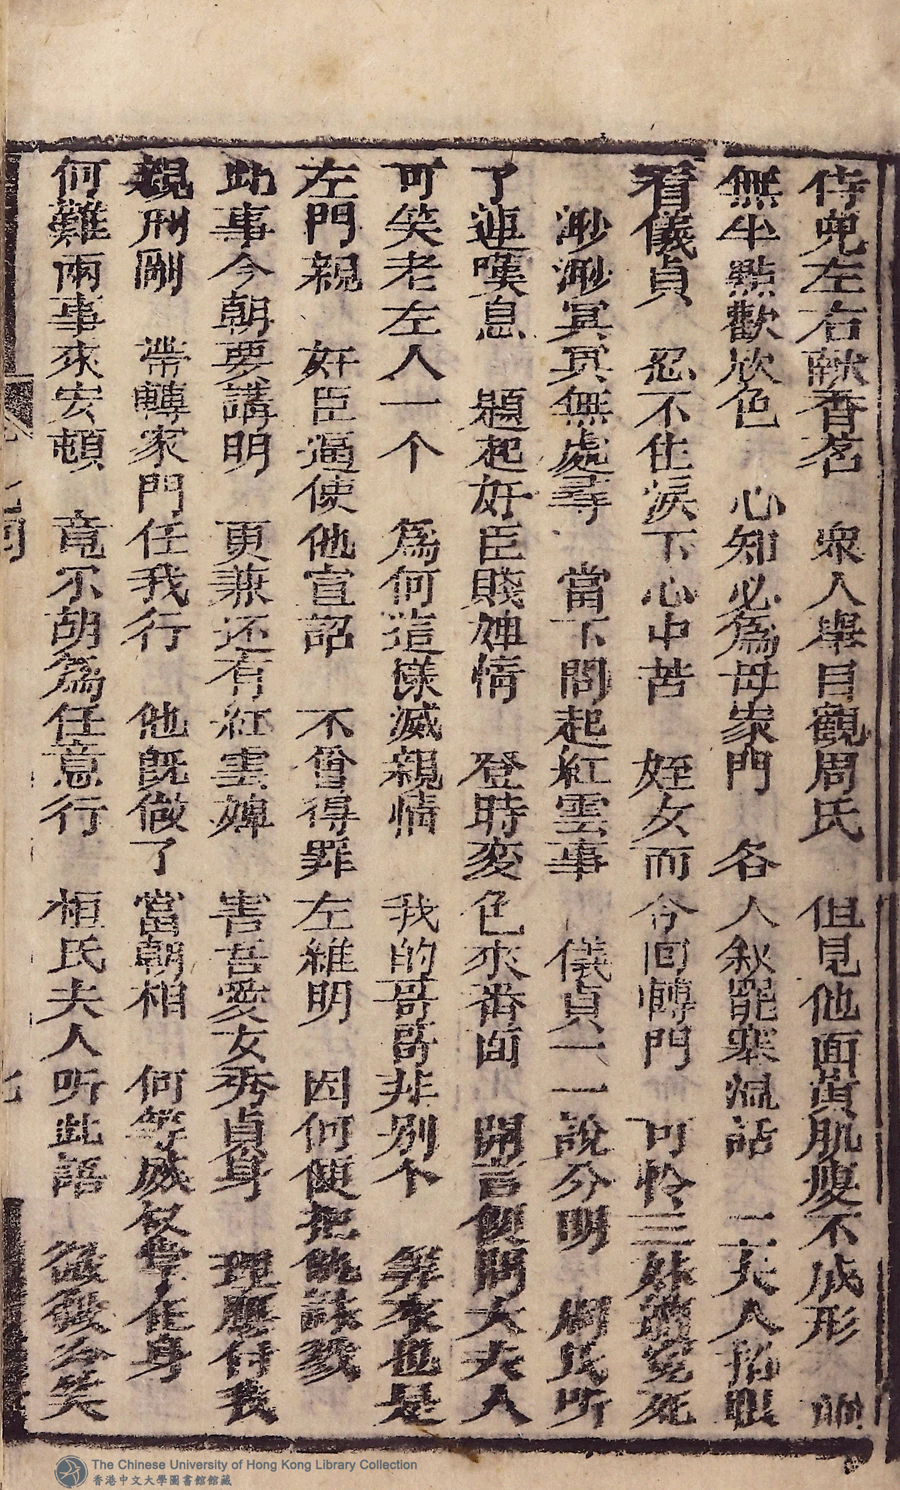 侍兒左右献香茗　衆人舉目觀周氏　但見他面黃肌瘦不成形
無半點歡欣色　心知必為母家門　各人叙罷寒温話　二夫人抬眼
看儀貞　忍不住淚下心中苦　姪女而今回轉門　可怜三妹遭寃死
渺渺冥冥無處尋　當下問起紅雲事　儀貞一一說分明　周氏听
了連嘆息　題起奸臣賤婢情　登時変色來番面　開言便問大夫人
可笑老左人一个　為何這様滅親情　我的哥哥非别个　算來也是
左門親　奸臣逼使他宣詔　不曾得罪左維明　因何便把他誅戮
此事今朝要講明　更兼还有紅雲婢　害吾愛女秀貞身　理應付我
親刑剮　帶轉家門任我行　他既做了當朝相　何等威权掌在身
何難兩事來安頓　竟尔胡為任意行　桓氏夫人听此語　微微公笑
The Chinese University of Hong Kong Library Collection
香港中文大學圖書館館藏